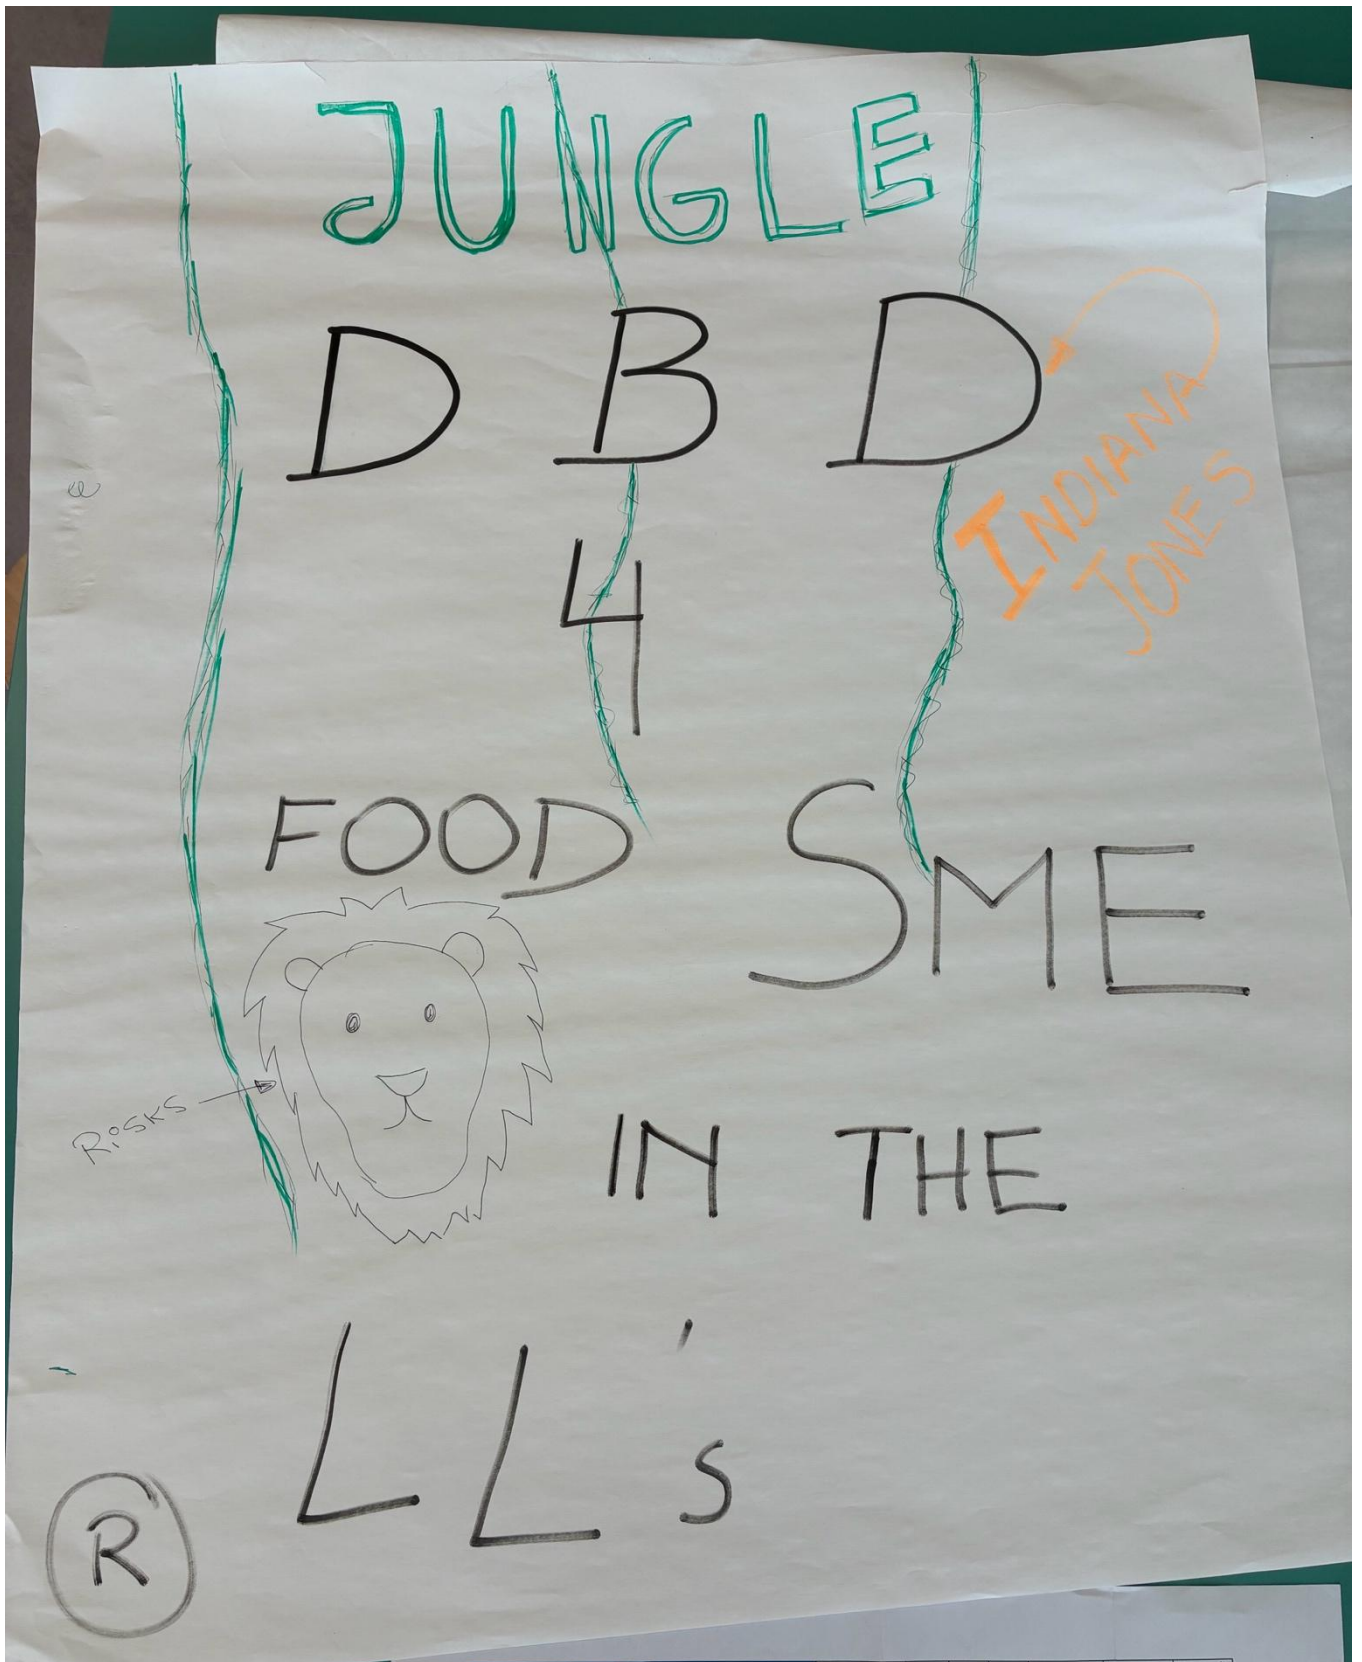 JUNGLE
D B D
INDIANA
JONES
4
FOOD SME
RiSKS
IN THE
LL's
R